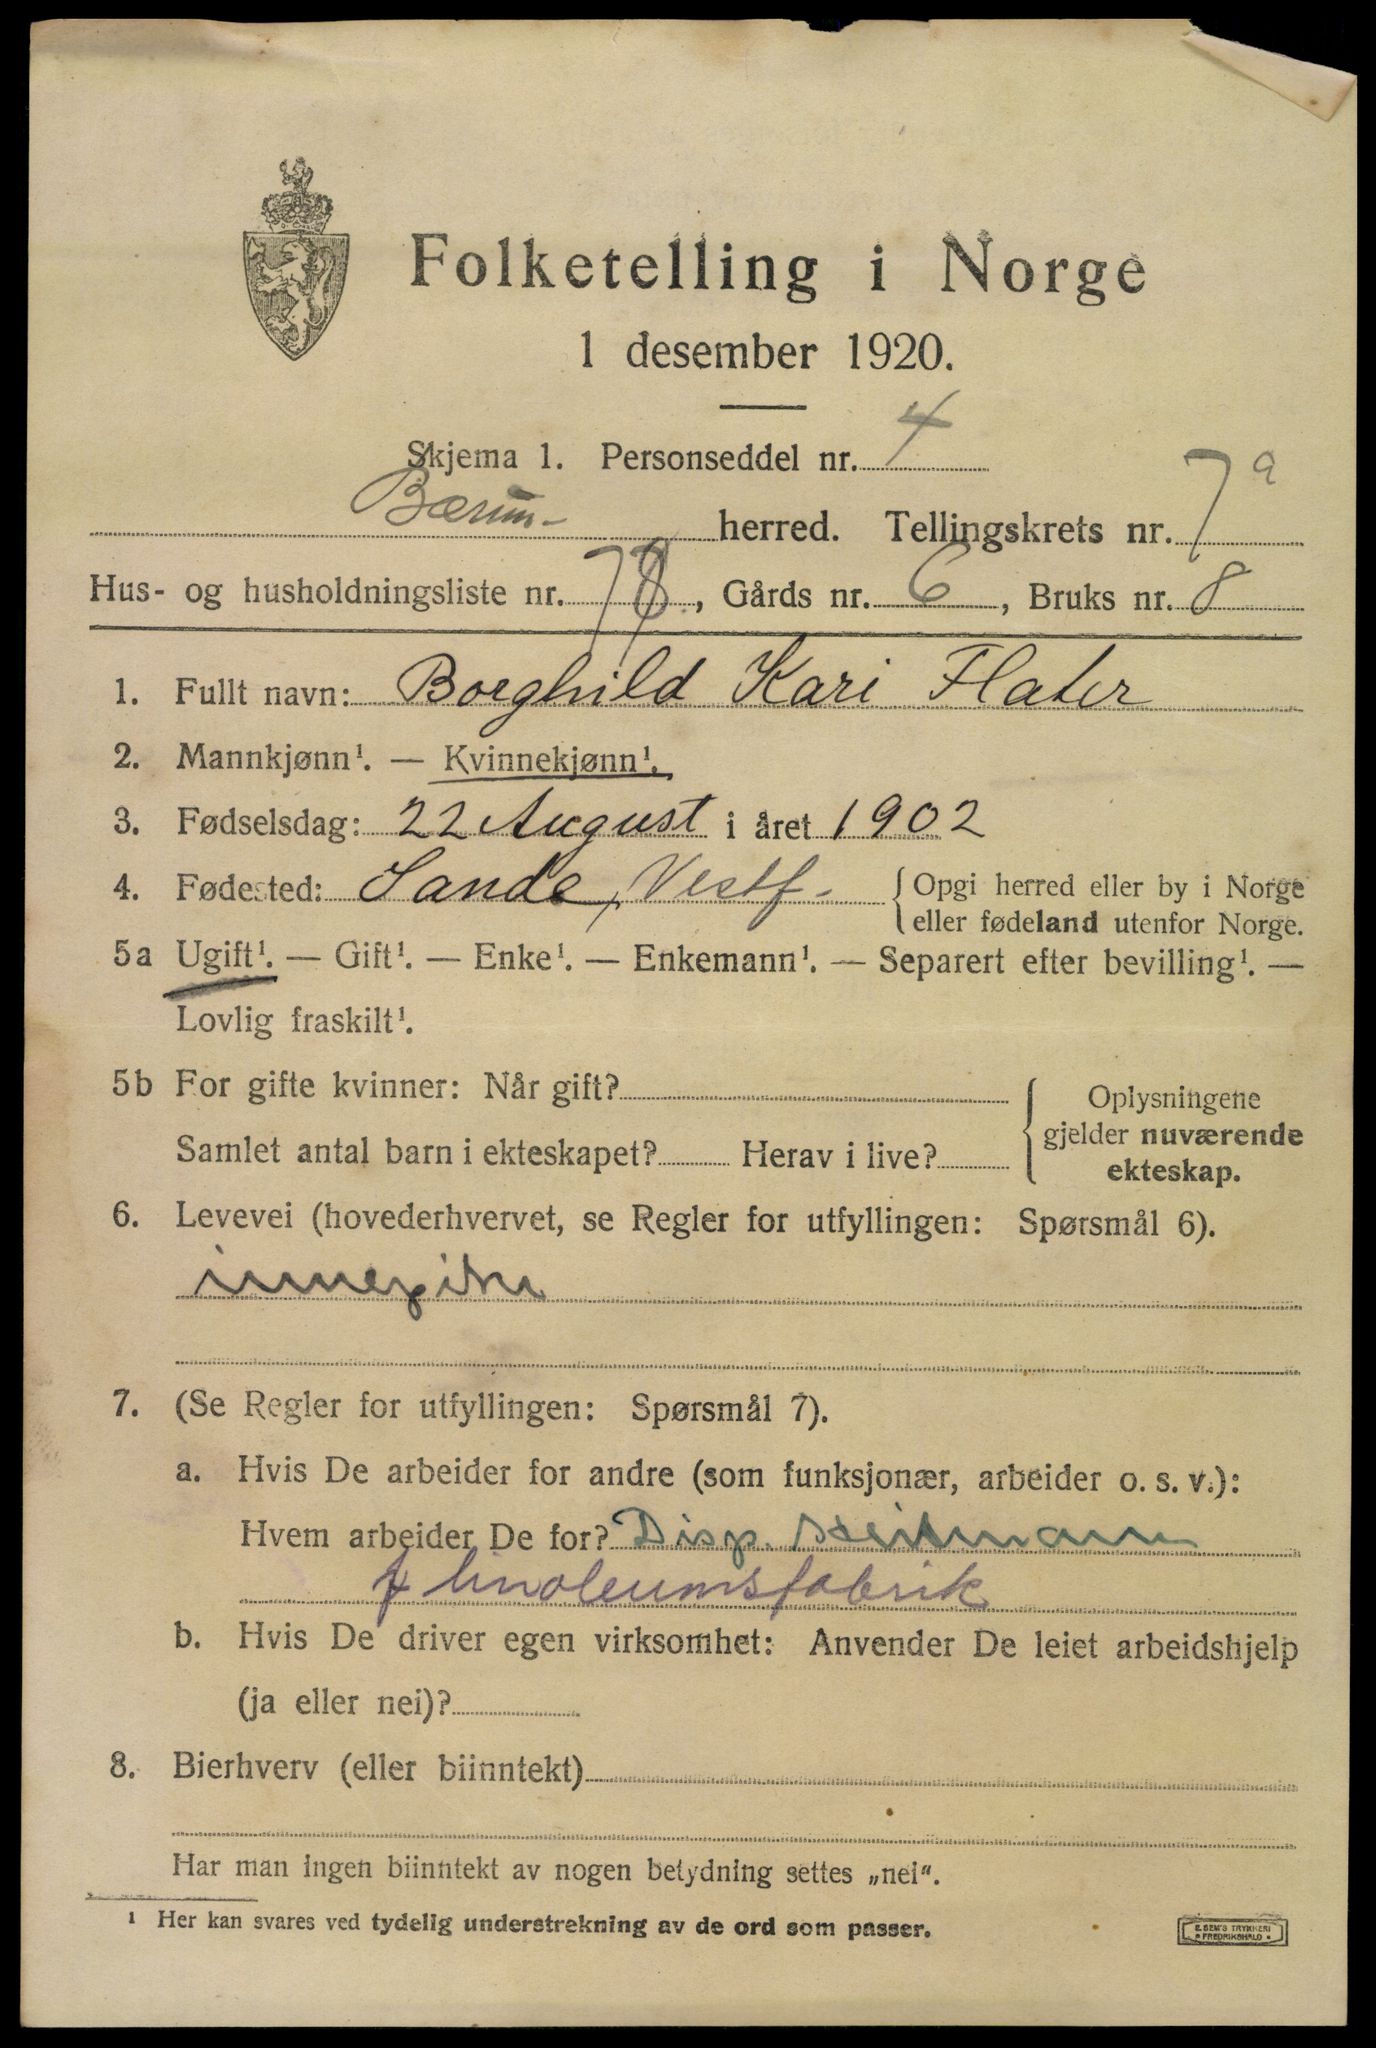 Folketelling i Norge
1 desember 1920.
Skjema 1. Personseddel nr. 4
Bærum herred. Tellingskrets nr. 7a
Hus- og husholdningsliste nr. 78, Gårds nr. 6, Bruks nr. 8
1. Fullt navn: Borghild Kari Flater
2. Mannkjønn¹. — Kvinnekjønn¹.
3. Fødselsdag: 22 August i året 1902
4. Fødested: Sande, Vestf. { Opgi herred eller by i Norge
eller fødeland utenfor Norge.
5a Ugift¹. — Gift¹. — Enke¹. — Enkemann¹. — Separert efter bevilling¹. —
Lovlig fraskilt¹.
5b For gifte kvinner: Når gift?
Samlet antal barn i ekteskapet? Herav i live?
Oplysningene
gjelder nuværende
ekteskap.
6. Levevei (hovederhvervet, se Regler for utfyllingen: Spørsmål 6).
innepike
7. (Se Regler for utfyllingen: Spørsmål 7).
a. Hvis De arbeider for andre (som funksjonær, arbeider o. s. v.):
Hvem arbeider De for? Disp.
f linoleumsfabrik
b. Hvis De driver egen virksomhet: Anvender De leiet arbeidshjelp
(ja eller nei)?
8. Bierhverv (eller biinntekt)
Har man ingen biinntekt av nogen betydning settes „nei“.
¹ Her kan svares ved tydelig understrekning av de ord som passer.
E. SEM'S TRYKKERI
FREDRIKSHALD